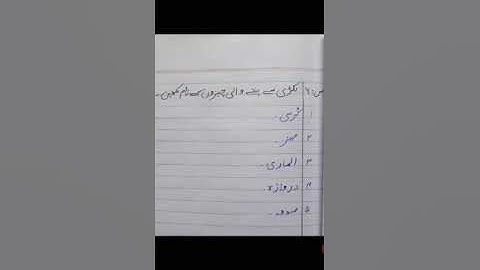 س: ۶ لکڑی سے بننے والی چیزوں کے نام لکھیں۔
۱ کرسی۔
۲ میز۔
۳ الماری۔
۴ دروازہ
۵ صندوق۔